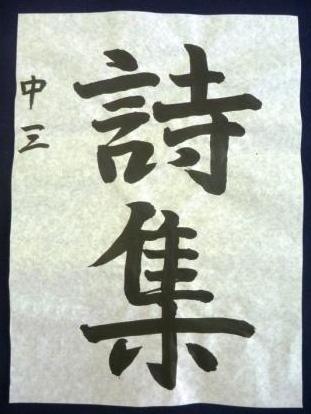 詩集
中三